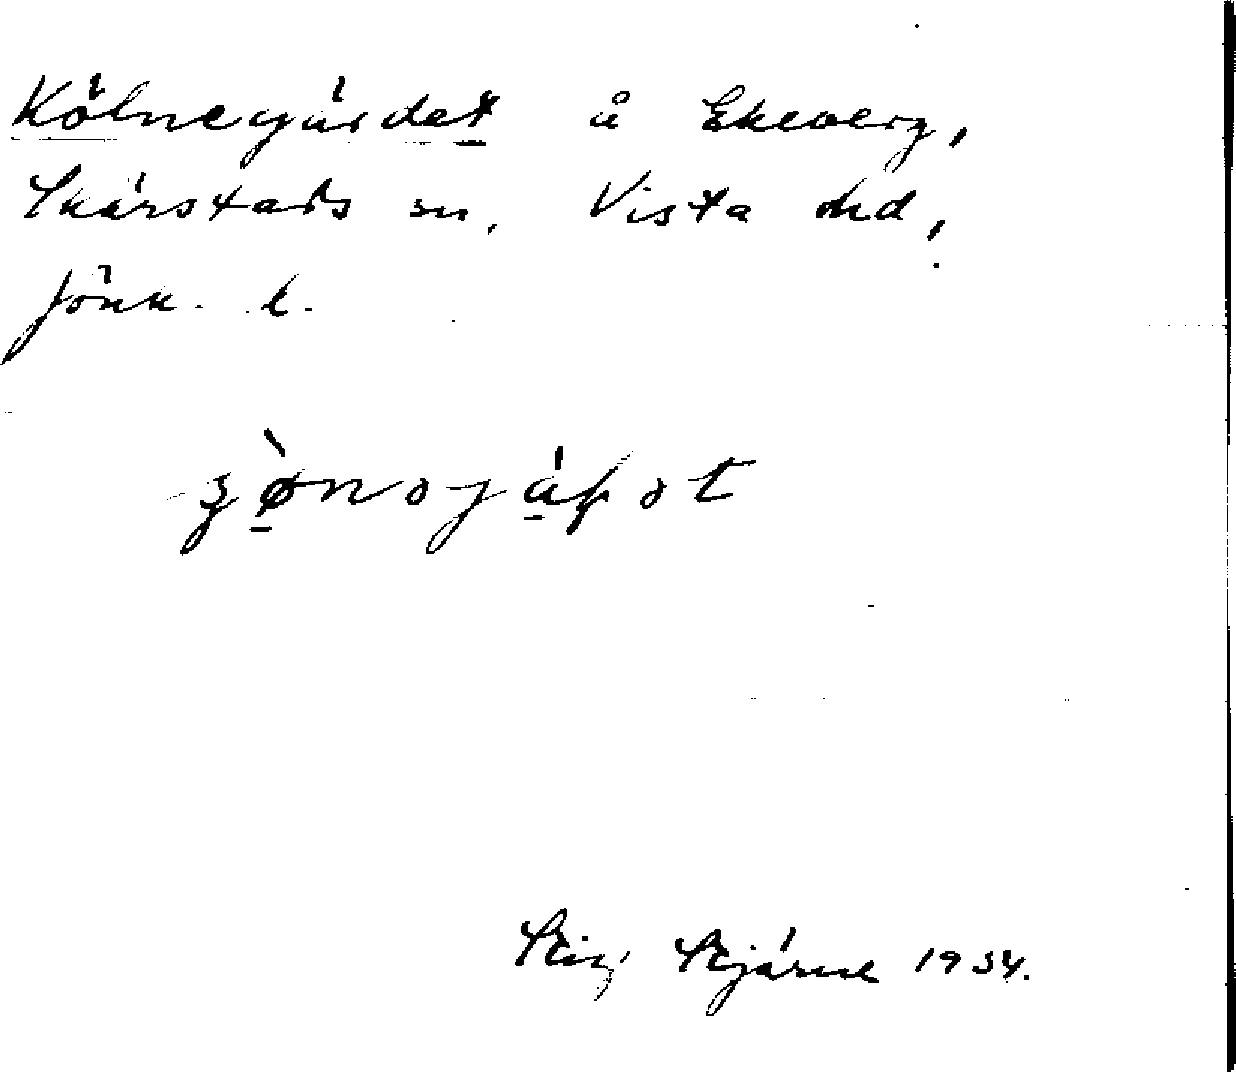 Kölnegärdet å Ekeberg,
Skärstads sn, Vista hd,
Jönk. l.
Stig Stjärne 1934.